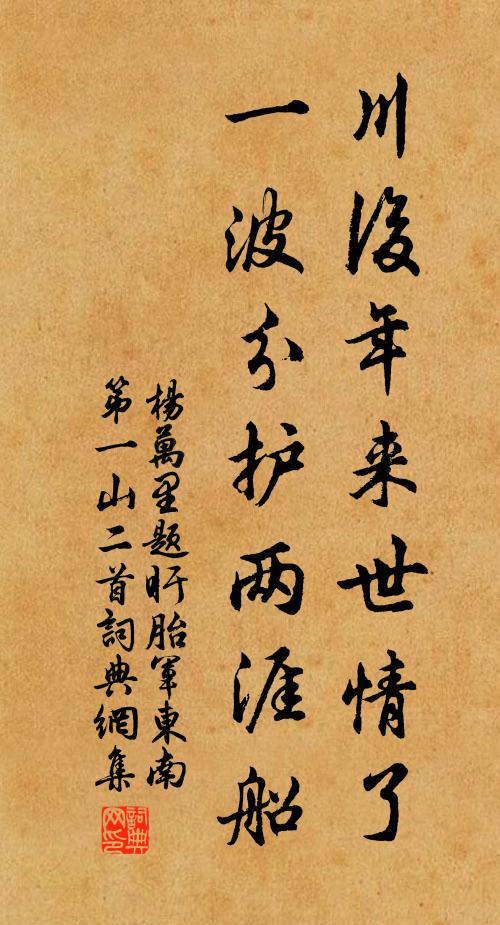 川後年来世情了
一波分护两涯船
楊萬里题盱胎軍東南
第一山二首詞典網集
詞典
网印